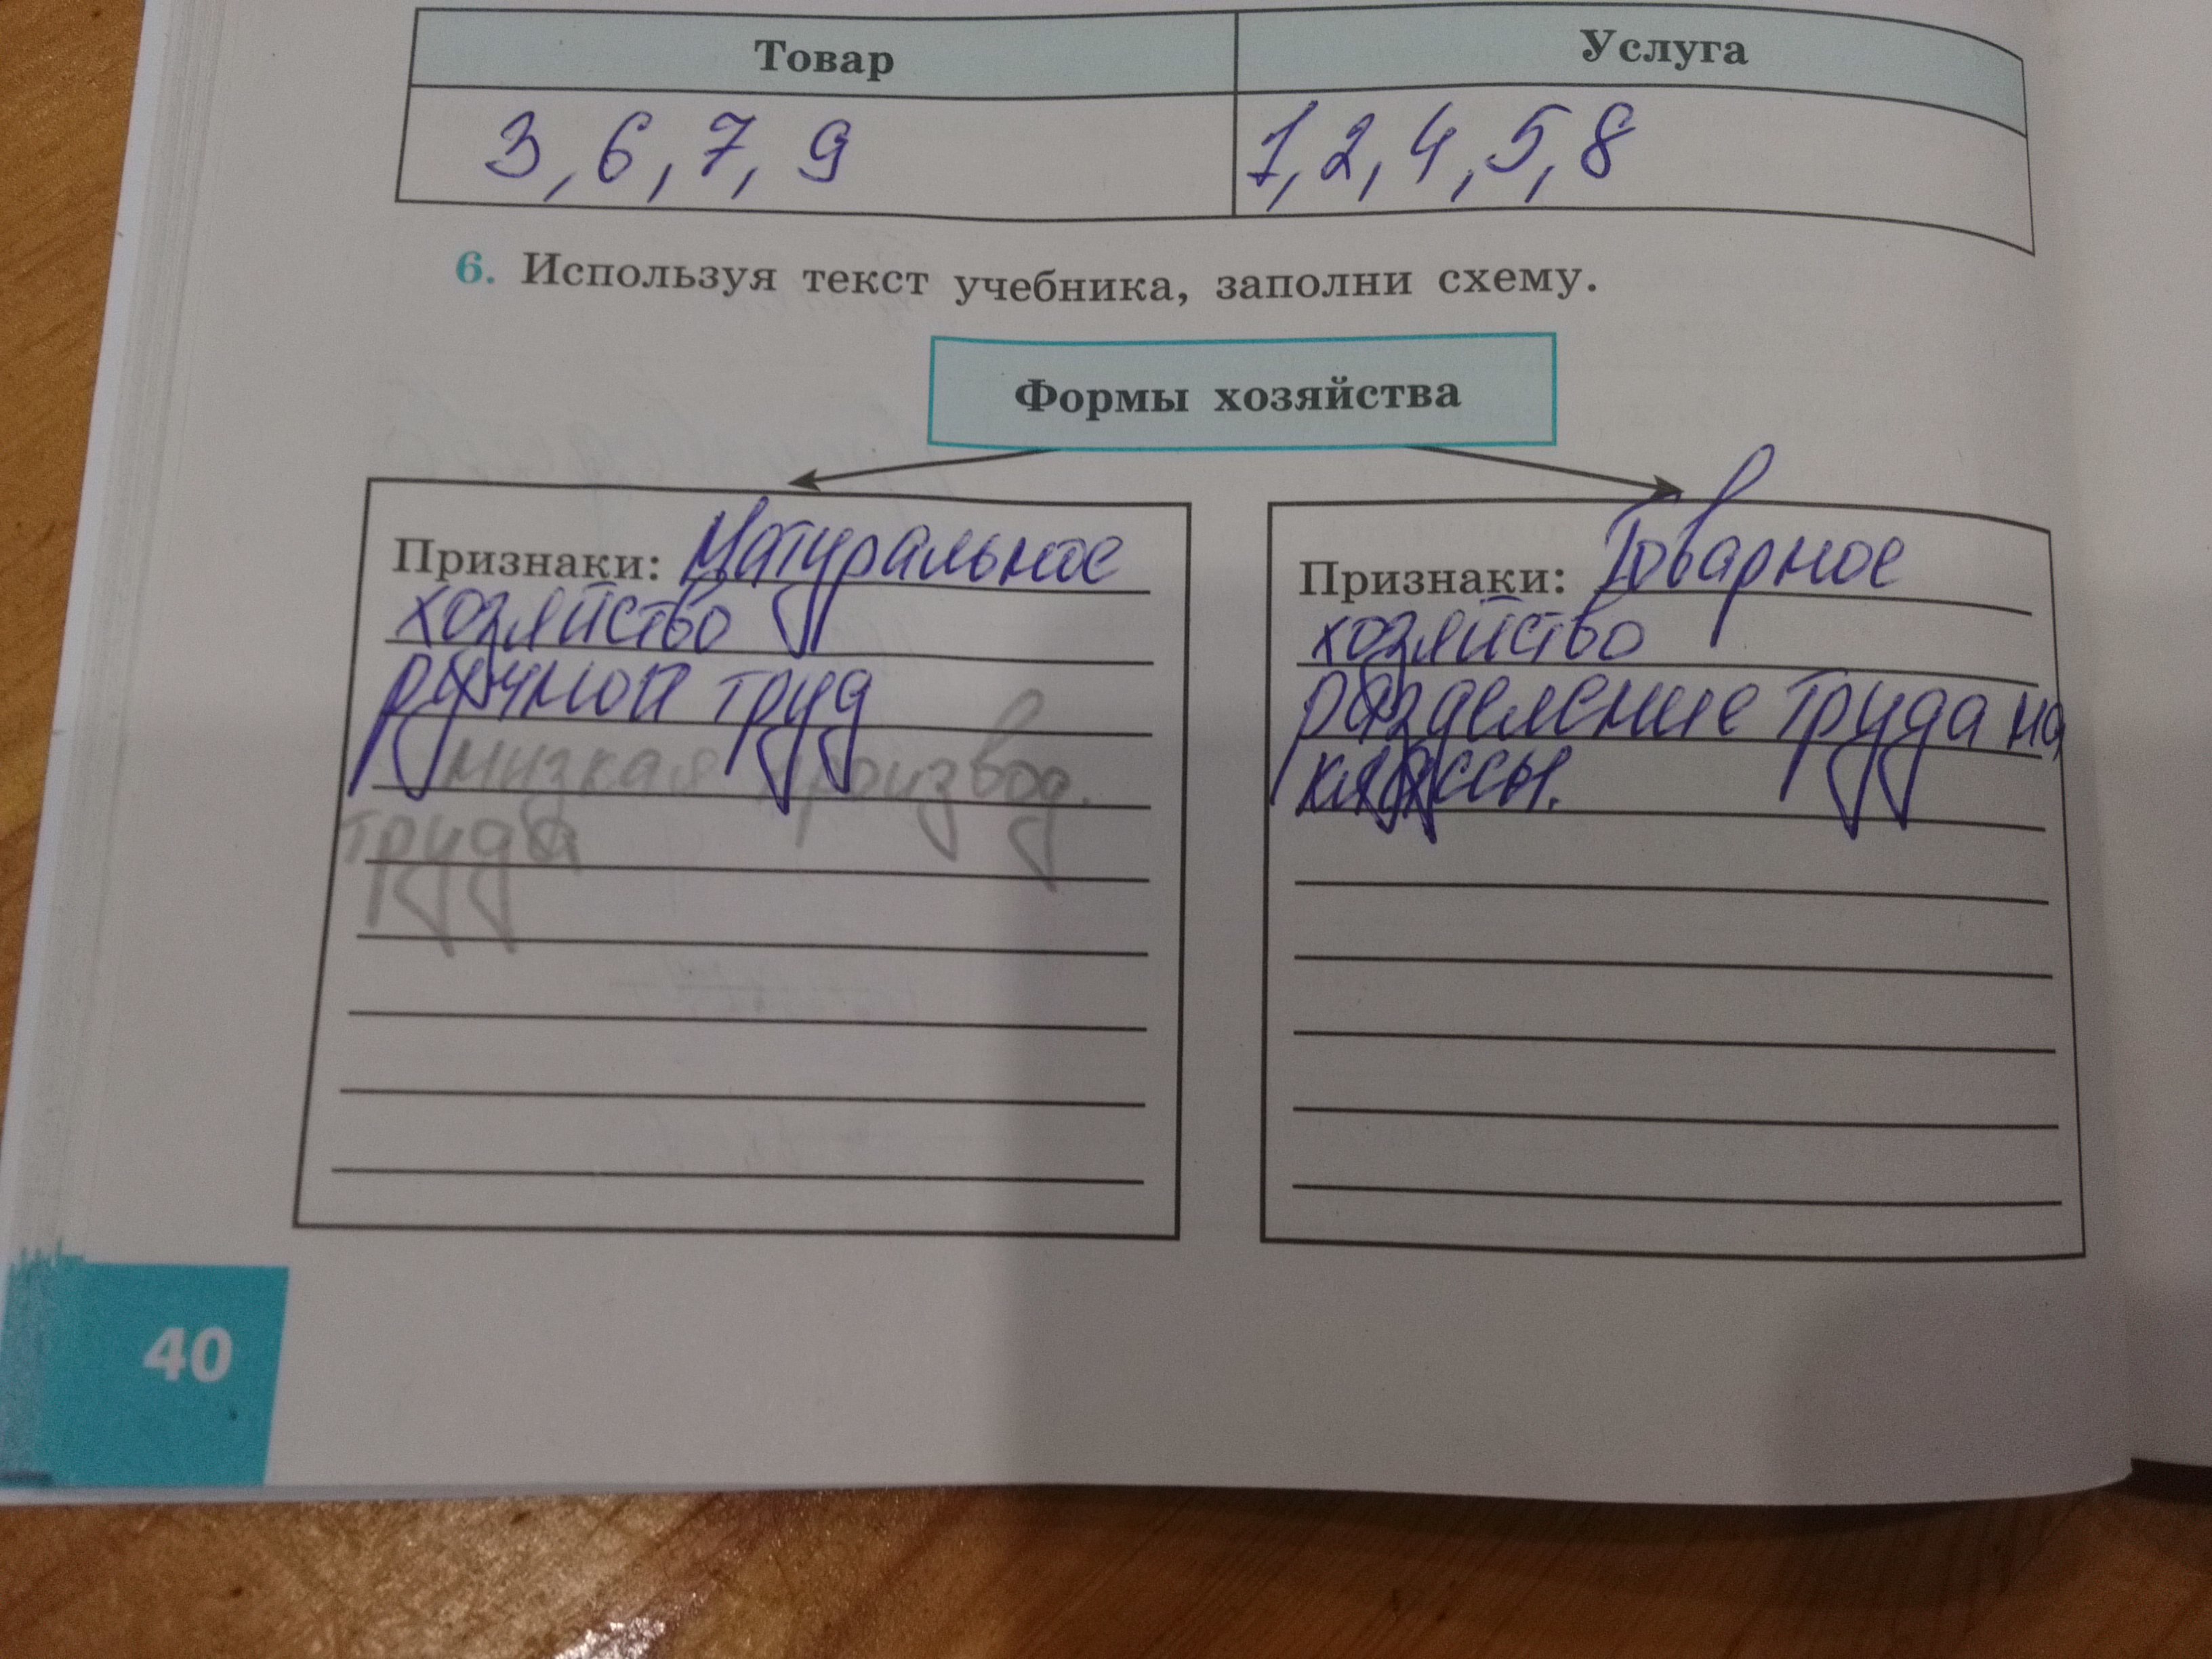 Товар Услуга
3, 6, 7, 9 1, 2, 4, 5, 8
6. Используя текст учебника, заполни схему.
Формы хозяйства
Признаки: Натуральное
хозяйство
ручной труд
низкая производ.
труда
Признаки: Товарное
хозяйство
разделение труда на
классы.
40